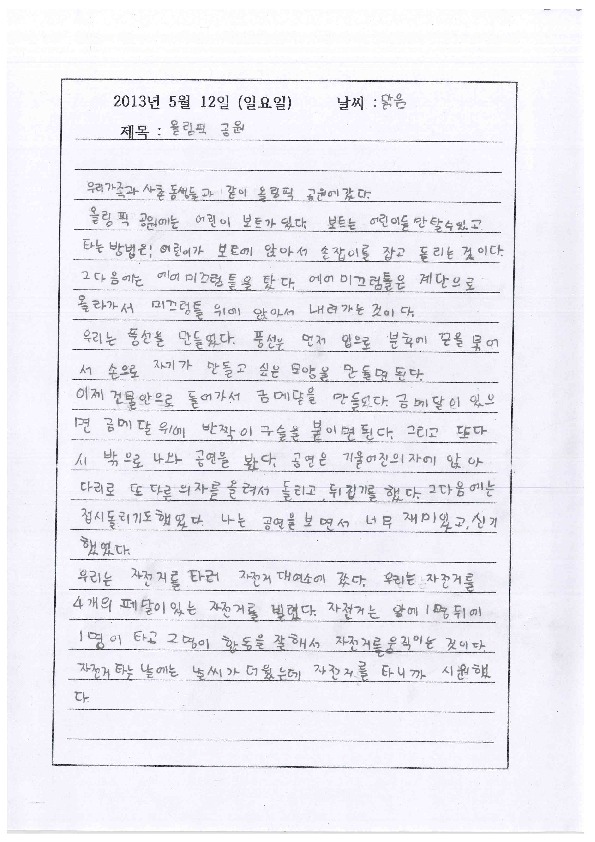 2013년 5월 12일 (일요일) 날씨 : 맑음
제목 : 올림픽 공원
우리가족과 사촌동생들과 같이 올림픽 공원에 갔다.
올림픽 공원에는 어린이 보트가 있다. 보트는 어린이들만 탈수있고
타는 방법은! 어린이가 보트에 앉아서 손잡이를 잡고 돌리는 것이다.
그다음에는 에어미끄럼틀을 탔다. 에어미끄럼틀은 계단으로
올라가서 미끄럼틀 위에 앉아서 내려가는것이다.
우리는 풍선을 만들었다. 풍선은 먼저 입으로 분후에 끈을 묶어
서 손으로 자기가 만들고 싶은 모양을 만들면된다.
이제 건물안으로 들어가서 금메달을 만들었다. 금메달이 있으
면 금메달 위에 반짝이 구슬을 붙이면된다. 그리고 또다
시 밖으로 나와 공연을 봤다. 공연은 기울어진의자에 앉아
다리로 또 다른의자를 올려서 돌리고, 뒤집기를 했다. 그다음에는
접시돌리기도했었다. 나는 공연을 보면서 너무 재미있고, 신기
했었다.
우리는 자전거를 타러 자전거 대여소에 갔다. 우리는 자전거를
4개의 페달이있는 자전거를 빌렸다. 자전거는 앞에1명 뒤에
1명이 타고 2명이 활동을 잘해서 자전거를 움직이는 것이다
자전거 타는 날에는 날씨가 더웠는데 자전거를 타니까 시원했
다.